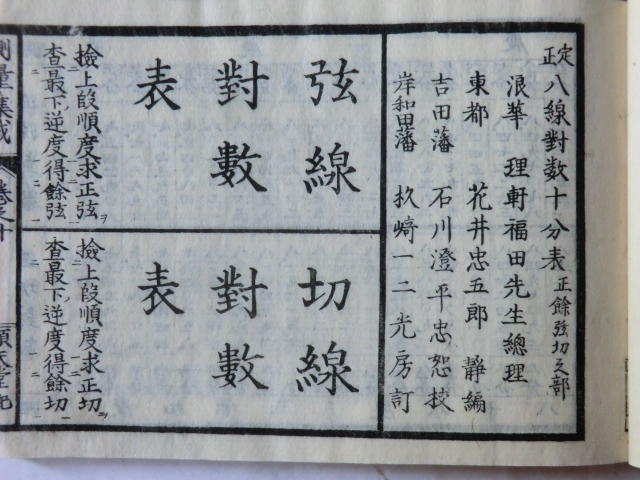 定正八線對数十分表 正餘弦切之部
浪華 理軒福田先生總理
東都 花井忠五郎 靜編
吉田藩 石川澄平忠恕挍
岸和田藩 杦﨑一二光房訂
弦線
對數
表
撿上段順度求正弦ヲ
查最下逆度得餘弦
切線
對數
表
撿上段順度求正切ヲ
查最下逆度得餘切
測量集成
卷之十
順天堂